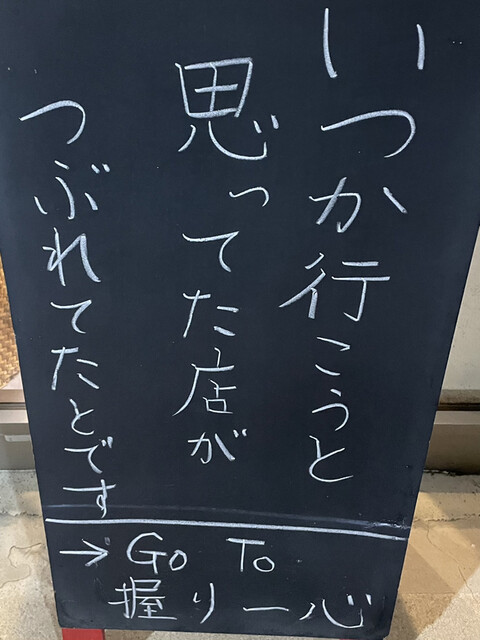 いつか行こうと
思ってた店が
つぶれてたとです
→ Go To
握り一心